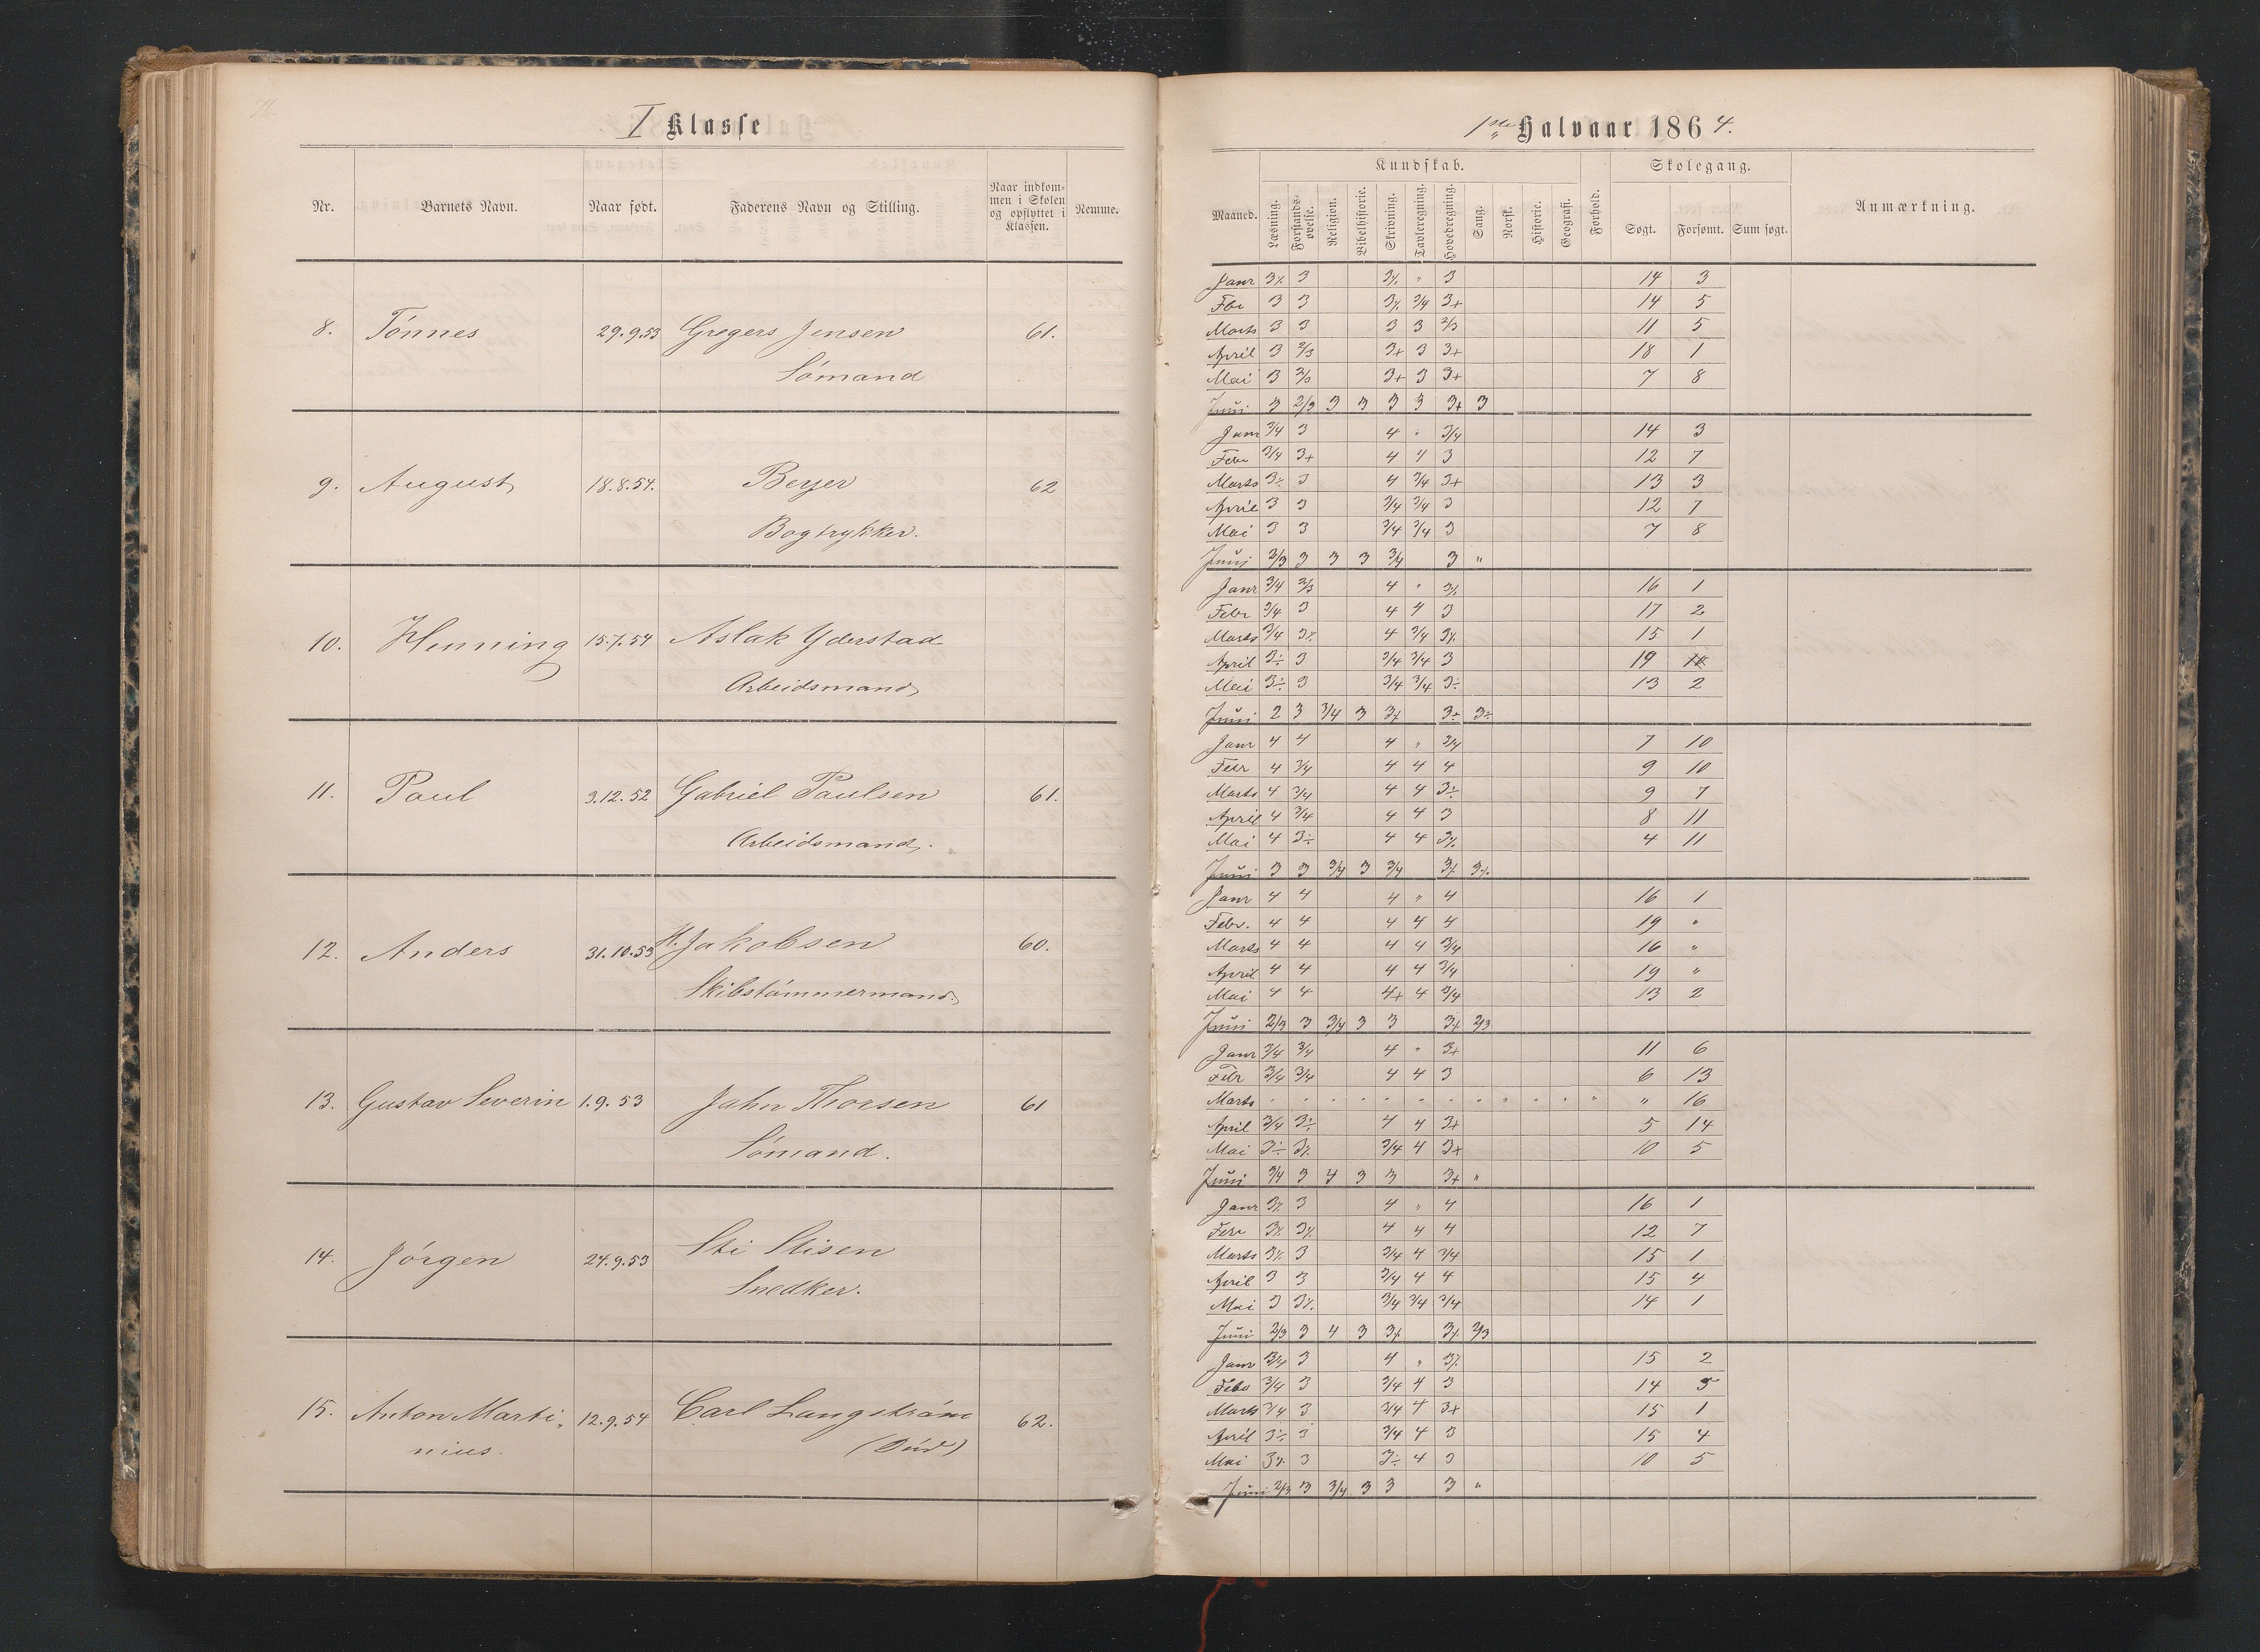 I Klasse
Nr. Barnets Navn. Naar født. Faderens Navn og Stilling. Naar indkom- men i Skolen og opflyttet i Klassen. Nemme.
8. Tönnes 29.9.53 Gregers Jensen 61.
Sömand
9. August 18.8.54. Beyer 62
Bogtrykker.
10. Henning 15.7.54 Aslak Yderstad
Arbeidsmand
11. Paul 3.12.52 Gabriel Paulsen 61.
Arbeidsmand.
12. Anders 31.10.53 H. Jakobsen 60.
Skibstömmermand.
13. Gustav Severin 1.9.53 Jahn Thorsen 61
Sömand.
14. Jörgen 24.9.53 Sti Stisen
Snedker.
15. Anton Marti- 12.9.54 Carl Langström 62.
nius. (Död)
1ste Halvaar 1864.
Kundskab. Skolegang.
Maaned. Læsning. Forstands- øvelse. Religion. Bibelhistorie. Skrivning. Tavleregning. Hovedregning. Sang. Norsk. Historie. Geografi. Forhold. Søgt. Forsømt. Sum søgt. Anmærkning.
Janr 3% 3 3% " 3 14 3
Fbr 3 3 3% 3/4 3+ 14 5
Marts 3 3 3 3 2/3 11 5
April 3 2/3 3+ 3 3+ 18 1
Mai 3 2/3 3+ 3 3+ 7 8
Juni 3 2/3 3 3 3 3 3+ 3
Janr 3/4 3 4 " 3/4 14 3
Febr 3/4 3+ 4 4 3 12 7
Marts 3% 3 4 3/4 3+ 13 3
April 3 3 3/4 3/4 3 12 7
Mai 3 3 3/4 3/4 3 7 8
Juni 2/3 3 3 3 3/4 3 "
Janr 3/4 2/3 4 " 3% 16 1
Febr 3/4 3 4 4 3 17 2
Marts 3/4 3% 4 3/4 3% 15 1
April 3÷ 3 3/4 3/4 3 19
Mai 3÷ 3 3/4 3/4 3÷ 13 2
Juni 2 3 3/4 3 3% 3+ 3÷
Janr 4 4 4 " 3/4 7 10
Febr 4 3/4 4 4 4 9 10
Marts 4 3/4 4 4 3÷ 9 7
April 4 3/4 4 4 3 8 11
Mai 4 3÷ 4 4 3% 4 11
Juni 3 3 3/4 3 3/4 3% 3%
Janr 4 4 4 " 4 16 1
Febr. 4 4 4 4 4 19 "
Marts 4 4 4 4 3/4 16 "
April 4 4 4 4 3/4 19 "
Mai 4 4 4+ 4 3/4 13 2
Juni 2/3 3 3/4 3 3 3% 2/3
Janr 3/4 3/4 4 " 3+ 11 6
Febr 3/4 3/4 4 4 3 6 13
Marts " " " " " " " " " " " " " 16
April 3/4 3÷ 4 4 3+ 5 14
Mai 3÷ 3% 3/4 4 3+ 10 5
Juni 3/4 3 4 3 3 3+ "
Janr 3% 3 4 " 4 16 1
Febr 3% 3% 4 4 4 12 7
Marts 3% 3 3/4 4 3/4 15 1
April 3 3 3/4 4 4 15 4
Mai 3 3% 3/4 3/4 3/4 14 1
Juni 2/3 3 4 3 3% 3% 2/3
Janr 3/4 3 4 " 3% 15 2
Febr 3/4 3 3/4 4 3 14 5
Marts 3/4 3 3/4 4 3+ 15 1
April 3÷ 3 3/4 4 3 15 4
Mai 3% 3 3÷ 4 3 10 5
Juni 2/3 3 3/4 3 3 3 "